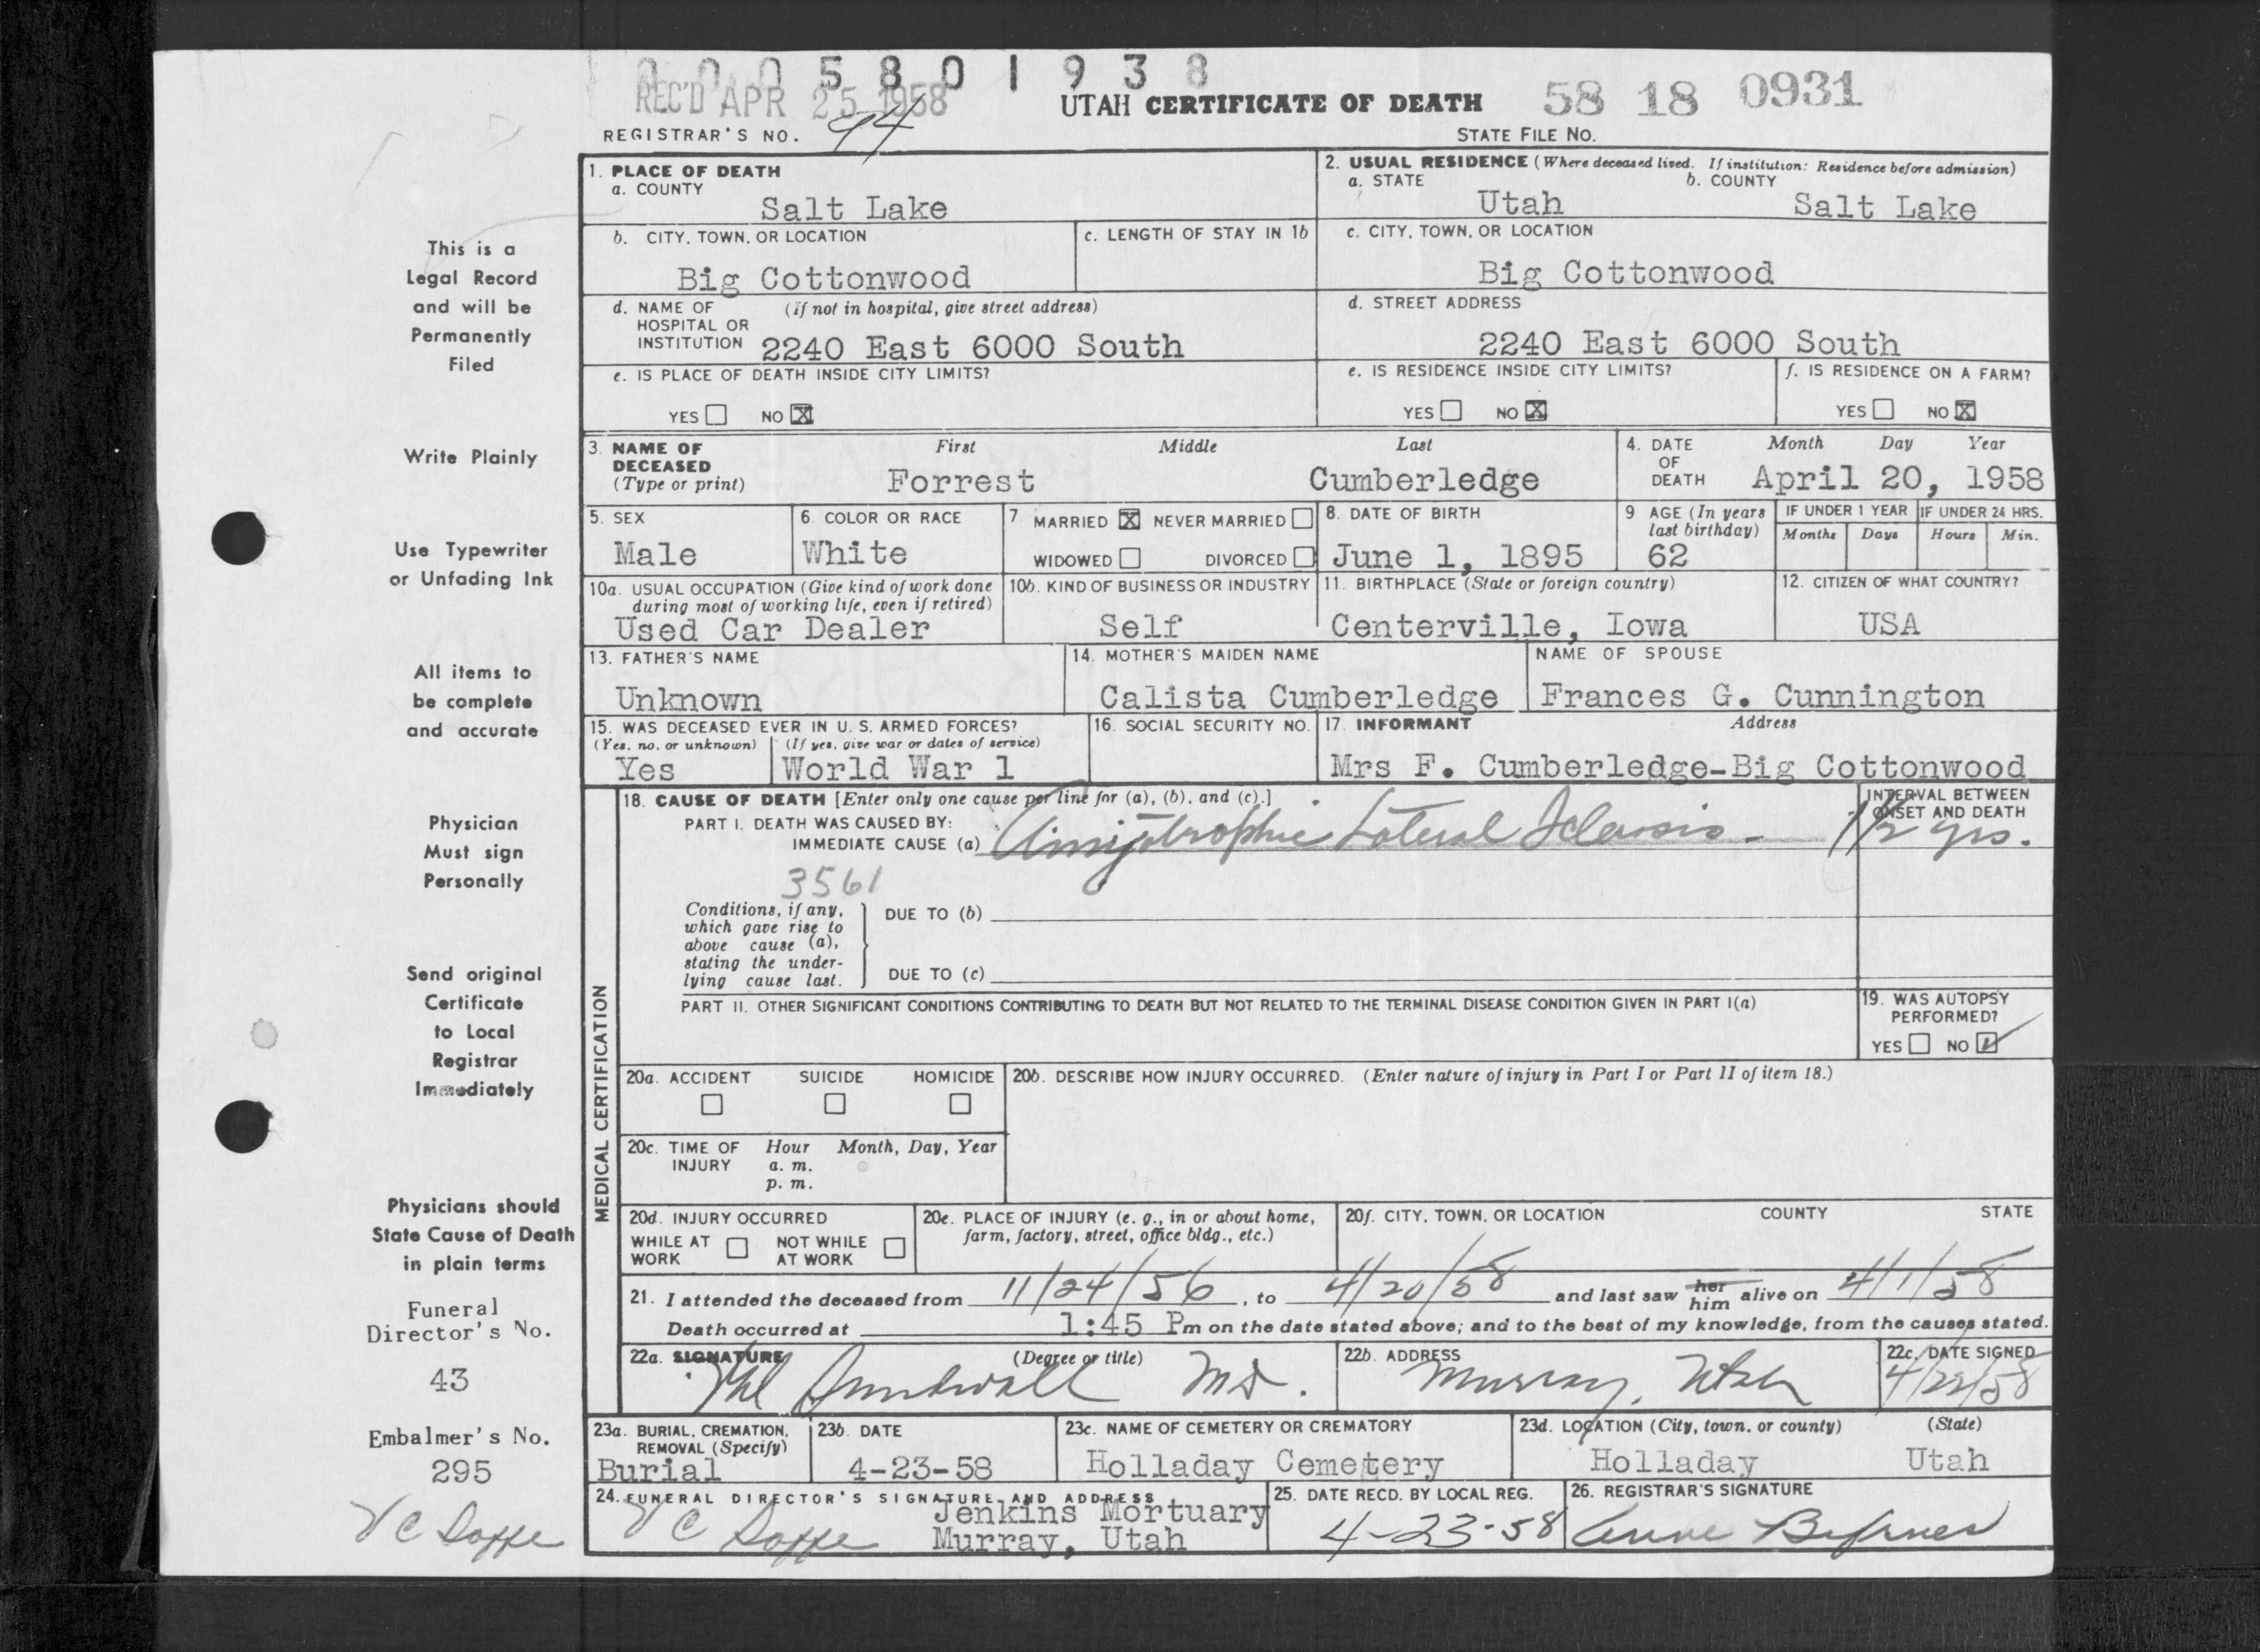 0 0 0 5 8 0 1 9 3 8
REC'D APR 25 1958
UTAH CERTIFICATE OF DEATH 58 18 0931
REGISTRAR'S NO. 94 STATE FILE NO.
This is a
Legal Record
and will be
Permanently
Filed
Write Plainly
Use Typewriter
or Unfading Ink
All items to
be complete
and accurate
Physician
Must sign
Personally
Send original
Certificate
to Local
Registrar
Immediately
Physicians should
State Cause of Death
in plain terms
Funeral
Director's No.
43
Embalmer's No.
295
1. PLACE OF DEATH
a. COUNTY
Salt Lake
2. USUAL RESIDENCE (Where deceased lived. If institution: Residence before admission)
a. STATE b. COUNTY
Utah Salt Lake
b. CITY, TOWN, OR LOCATION
Big Cottonwood
c. LENGTH OF STAY IN 1b
c. CITY, TOWN, OR LOCATION
Big Cottonwood
d. NAME OF (If not in hospital, give street address)
HOSPITAL OR
INSTITUTION 2240 East 6000 South
d. STREET ADDRESS
2240 East 6000 South
e. IS PLACE OF DEATH INSIDE CITY LIMITS?
YES NO X
e. IS RESIDENCE INSIDE CITY LIMITS?
YES NO X
f. IS RESIDENCE ON A FARM?
YES NO X
3. NAME OF First Middle Last
DECEASED
(Type or print) Forrest Cumberledge
4. DATE Month Day Year
OF
DEATH April 20, 1958
5. SEX
Male
6. COLOR OR RACE
White
7 MARRIED X NEVER MARRIED
WIDOWED DIVORCED
8. DATE OF BIRTH
June 1, 1895
9 AGE (In years
last birthday)
62
IF UNDER 1 YEAR
Months Days
IF UNDER 24 HRS.
Hours Min.
10a. USUAL OCCUPATION (Give kind of work done
during most of working life, even if retired)
Used Car Dealer
10b. KIND OF BUSINESS OR INDUSTRY
Self
11. BIRTHPLACE (State or foreign country)
Centerville, Iowa
12. CITIZEN OF WHAT COUNTRY?
USA
13. FATHER'S NAME
Unknown
14. MOTHER'S MAIDEN NAME
Calista Cumberledge
NAME OF SPOUSE
Frances G. Cunnington
15. WAS DECEASED EVER IN U. S. ARMED FORCES?
(Yes, no, or unknown) (If yes, give war or dates of service)
Yes World War 1
16. SOCIAL SECURITY NO.
17. INFORMANT Address
Mrs F. Cumberledge-Big Cottonwood
MEDICAL CERTIFICATION
18. CAUSE OF DEATH [Enter only one cause per line for (a), (b), and (c).]
PART I. DEATH WAS CAUSED BY:
IMMEDIATE CAUSE (a) Lateral Sclerosis
INTERVAL BETWEEN
ONSET AND DEATH
1 1/2 yrs.
3561
Conditions, if any,
which gave rise to
above cause (a),
stating the under-
lying cause last.
DUE TO (b)
DUE TO (c)
PART II. OTHER SIGNIFICANT CONDITIONS CONTRIBUTING TO DEATH BUT NOT RELATED TO THE TERMINAL DISEASE CONDITION GIVEN IN PART I(a)
19. WAS AUTOPSY
PERFORMED?
YES NO ✓
20a. ACCIDENT SUICIDE HOMICIDE
20b. DESCRIBE HOW INJURY OCCURRED. (Enter nature of injury in Part I or Part II of item 18.)
20c. TIME OF Hour Month, Day, Year
INJURY a. m.
p. m.
20d. INJURY OCCURRED
WHILE AT NOT WHILE
WORK AT WORK
20e. PLACE OF INJURY (e. g., in or about home,
farm, factory, street, office bldg., etc.)
20f. CITY, TOWN, OR LOCATION COUNTY STATE
21. I attended the deceased from 11/24/56, to 4/20/58 and last saw her him alive on 4/1/58
Death occurred at 1:45 Pm on the date stated above; and to the best of my knowledge, from the causes stated.
22a. SIGNATURE (Degree or title)
MD.
22b. ADDRESS
Murray, Utah
22c. DATE SIGNED
4/22/58
23a. BURIAL, CREMATION,
REMOVAL (Specify)
Burial
23b. DATE
4-23-58
23c. NAME OF CEMETERY OR CREMATORY
Holladay Cemetery
23d. LOCATION (City, town, or county) (State)
Holladay Utah
24. FUNERAL DIRECTOR'S SIGNATURE AND ADDRESS
Jenkins Mortuary
Murray, Utah
25. DATE RECD. BY LOCAL REG.
4-23-58
26. REGISTRAR'S SIGNATURE